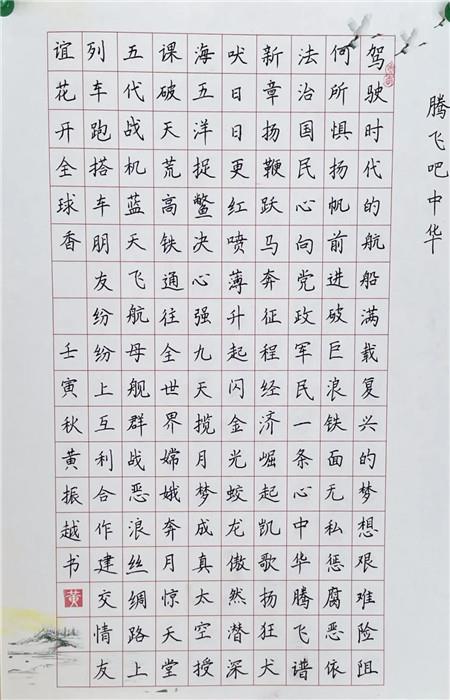 腾飞吧中华
驾驶时代的航船满载复兴的梦想艰难险阻
何所惧扬帆前进破巨浪铁面无私惩腐恶依
法治国民心向党政军民一条心中华腾飞谱
新章扬鞭跃马奔征程经济崛起凯歌扬狂犬
吠日日更红喷薄升起闪金光蛟龙傲然潜深
海五洋捉鳖决心强九天揽月梦成真太空授
课破天荒高铁通往全世界嫦娥奔月惊天堂
五代战机蓝天飞航母舰群战恶浪丝绸路上
列车跑搭车朋友纷纷上互利合作建交情友
谊花开全球香
壬寅秋黄振越书
黄